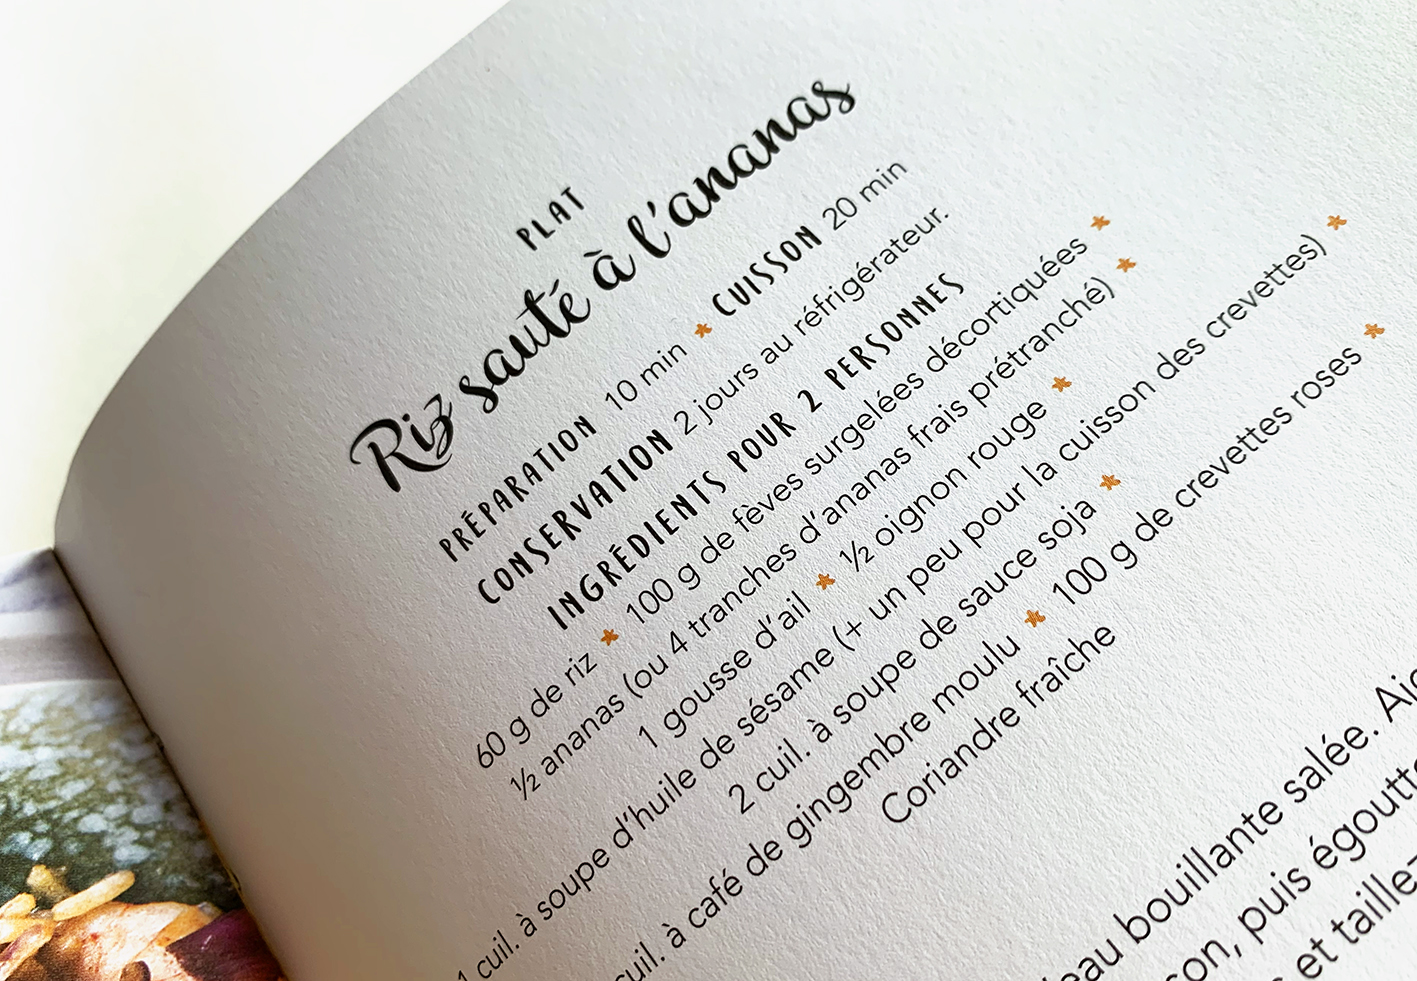 PLAT
Riz sauté à l'ananas
PRÉPARATION 10 min ★ CUISSON 20 min
CONSERVATION 2 jours au réfrigérateur.
INGRÉDIENTS POUR 2 PERSONNES
60 g de riz ★ 100 g de fèves surgelées décortiquées ★
½ ananas (ou 4 tranches d'ananas frais prétranché) ★
1 gousse d'ail ★ ½ oignon rouge ★
1 cuil. à soupe d'huile de sésame (+ un peu pour la cuisson des crevettes) ★
2 cuil. à soupe de sauce soja ★
cuil. à café de gingembre moulu ★ 100 g de crevettes roses ★
Coriandre fraîche
eau bouillante salée.
puis
et